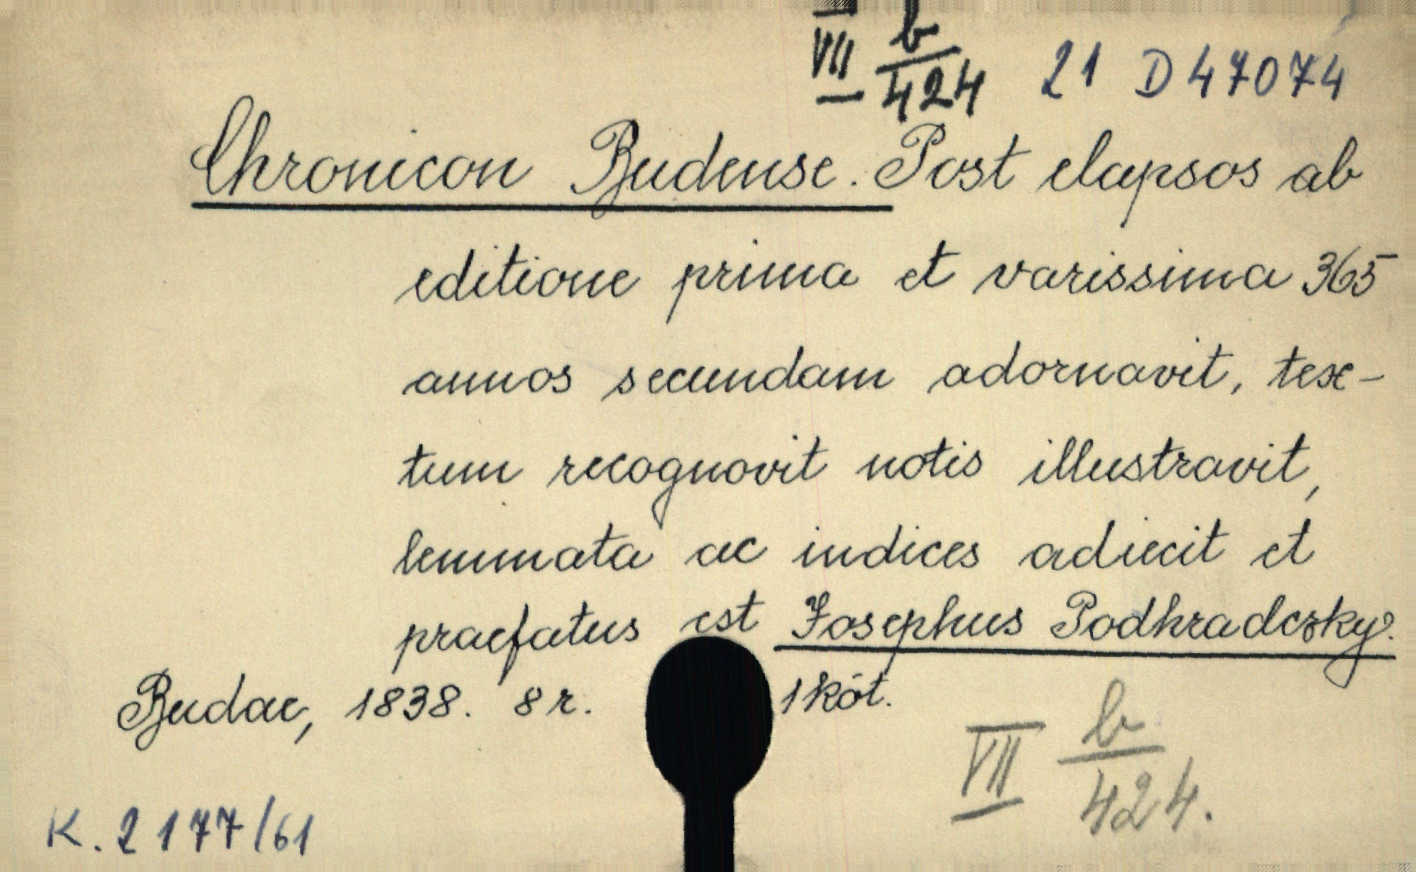 VII b/424 21 D 47074
Chronicon Budense. Post elapsos ab
editione prima et varissima 365
annos secundam adornavit, tex-
tum recognovit notis illustravit,
lemmata ac indices adiecit et
praefatus est Josephus Podhradczky.
Budae, 1838. 8r. 1 köt.
VII b/424.
K. 2177/61